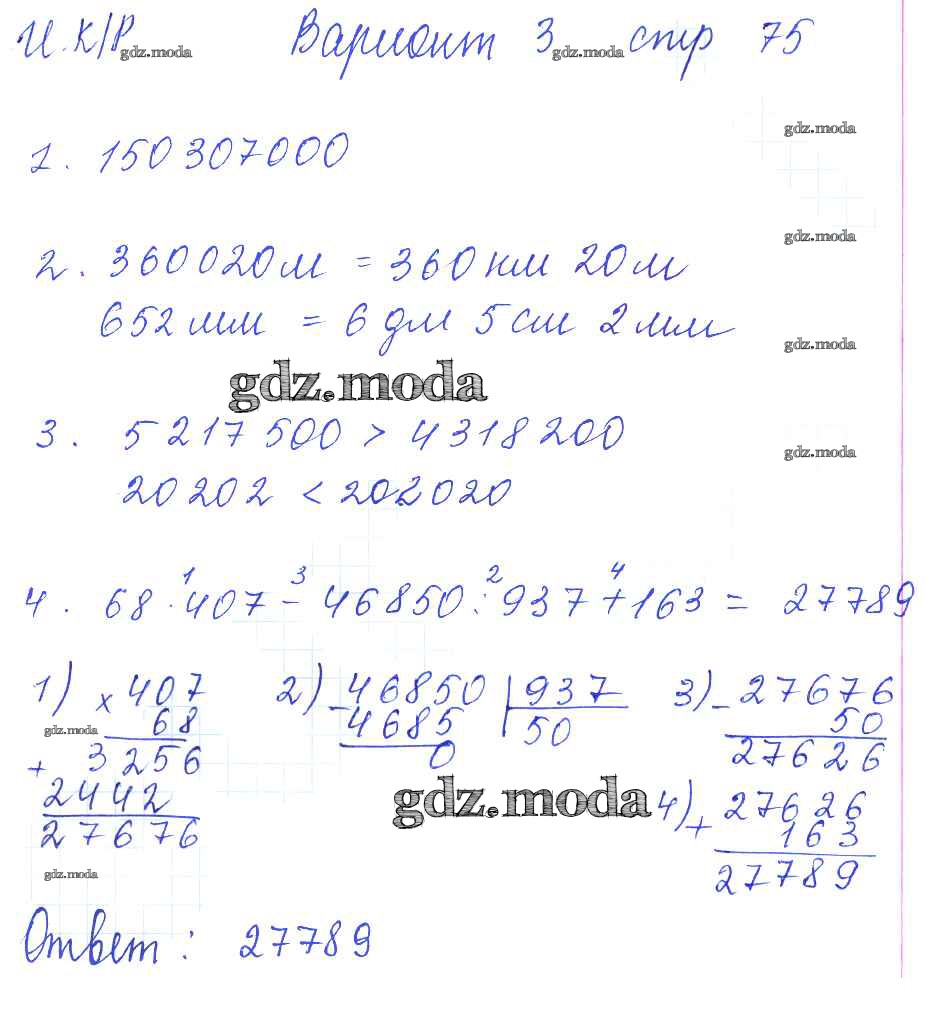 И.К/Р gdz.moda Вариант 3 gdz.moda стр 75
gdz.moda
1. 150307000
gdz.moda
2. 360020м = 360км 20м
652мм = 6дм 5см 2мм
gdz.moda
gdz.moda
3. 5217500 > 4318200
gdz.moda
20202 < 202020
1 3 2 4
4. 68·407-46850:937+163= 27789
1) ×407 2) -46850 |937 3) -27676
gdz.moda 68 4685 50 50
+3256 0 27626
gdz.moda 4) +27626
2442 163
27676 27789
gdz.moda
Ответ: 27789